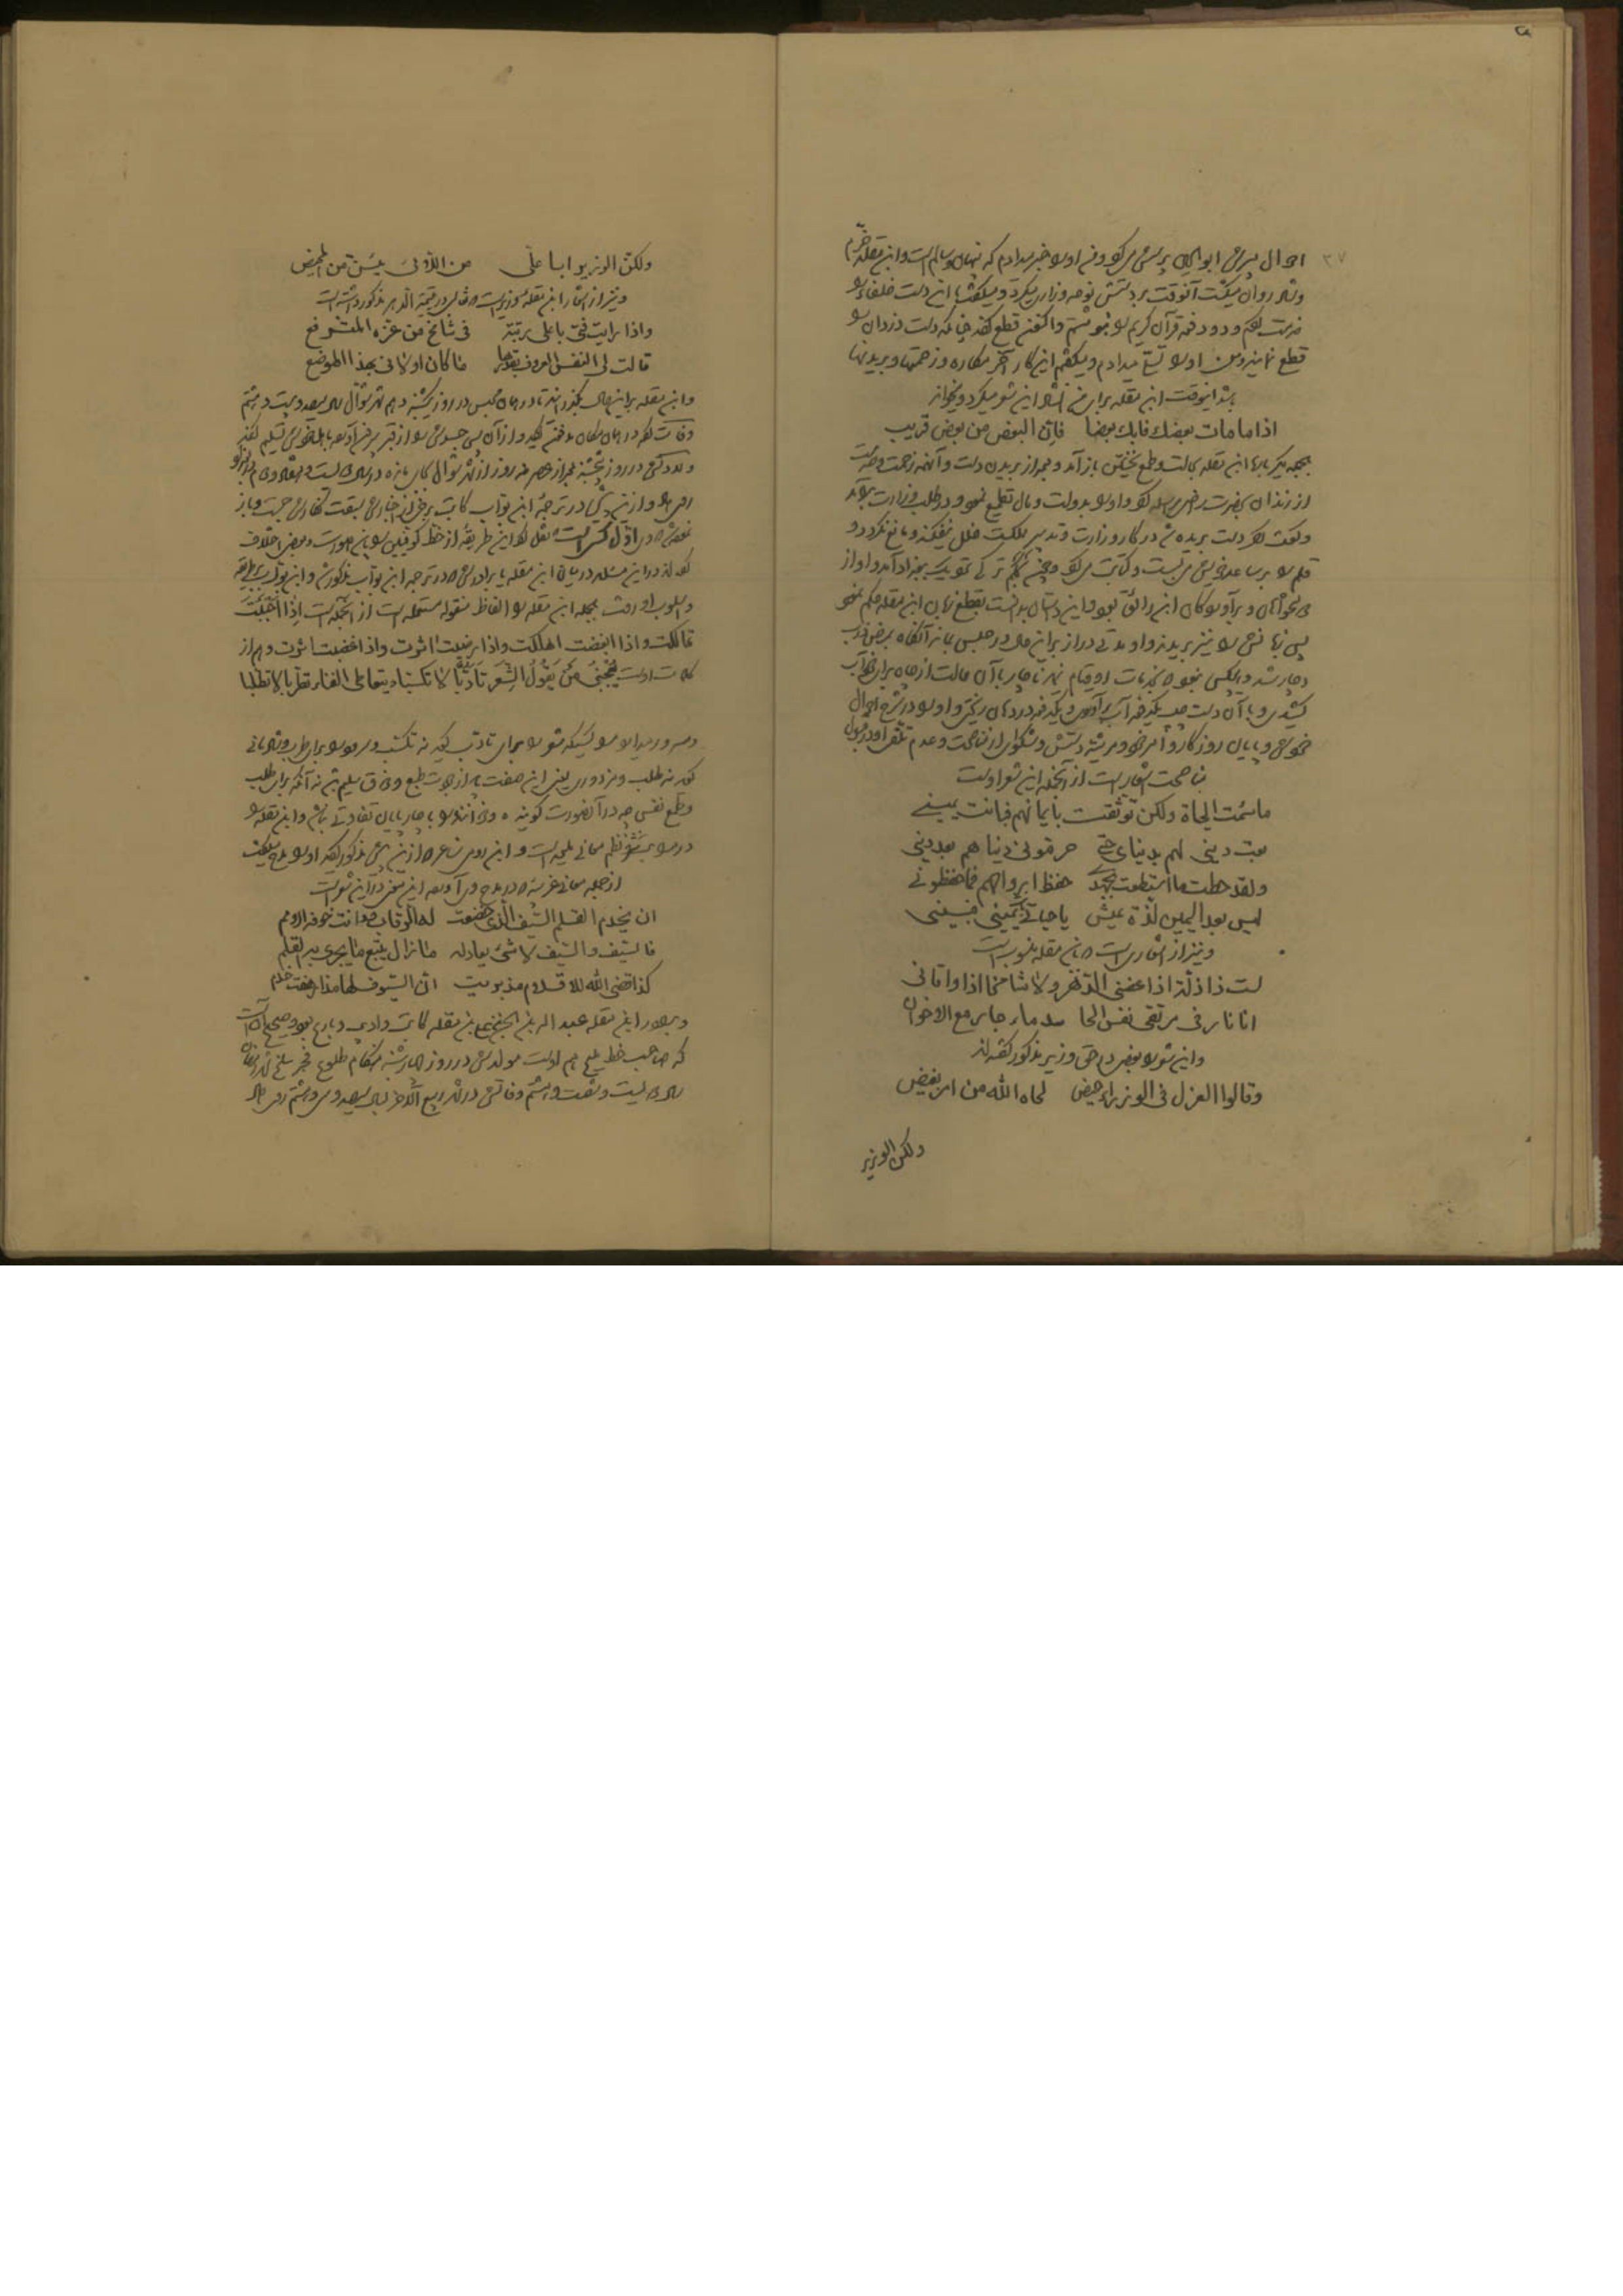 احوال پسرش ابوالحسین پرسش میکرد و من او را خبر میدادم که پنهان و سالم است و ابن مقله خرم
و شاد روان میگشت آنوقت بر دستش نوحه و زاری میکرد و میگفت با این دست خلفاء را
خدمت کردم و دو دفعه قرآن کریم را نوشتم و اکنون قطع کنند چنانکه دست دزدان را
قطع نمایند و من او را تسلی میدادم و میگفتم این کار آخر مکاره و زحمتها
اینوقت ابن مقله برای من انشاد این شعر میکرد
اذا ما مات بعضك فابك بعضا فان البعض من بعض قريب
ابن مقله باز آمد و بعد از بریدن دست و آنهمه زحمت
از زندان بحضرت راضی و او را بدولت و مال تطمیع نمود و طلب وزارت
و گفت دست بریده من در کار وزارت و تدبیر مملکت خلل نیفکند و مانع نگردد و
قلم را بر ساعد خویش می بست و کتابت میکرد و چون بجکم ترکی نزدیک بغداد آمد او را از
ابن رائق بود بقطع زبان ابن مقله حکم نمود
پس زبانش را نیز بریدند و او مدتی دراز بر این حال در حبس بماند آنگاه بمرض ذرب
دچار شد و هیچکس نبود که بخدمات او قیام نماید ناچار با آن حالت از چاه برای خود آب
کشیدی و با آن دست چپ یکدفعه آب برآوردی و یکدفعه در دهان ریختی و او را در شرح احوال
خود و پایان روزگار و مرثیه دستش و شکوای از مناصحت و عدم تلقی او در قبول
مناصحت اشعار است از آنجمله این شعر اوست
ما سئمت الحياة ولكن توثقت بايمانهم فبانت يميني
بعت ديني لهم بدنياي حتى حرموني دنياهم بعد ديني
ولقد حطت ما استطعت بجهدي حفظ ارواحهم فما حفظوني
ليس بعد اليمين لذة عيش يا حياتي بانت يميني فبيني
و نیز از اشعاری است که بابن مقله منسوبست
لست ذا ذلة اذا عضني الدهر ولا شامخا اذا واتاني
انا نار في مرتقى نفس الحا سد ماء جار مع الاخوان
و این شعر را بعضی در حق وزیر مذکور گفته اند
وقالوا العزل في الوزراء حيض لحاه الله من امر بغيض
ولكن الوزير
ولكن الوزير ابا علي من اللائي يئسن من المحيض
و نیز از اشعار ابن مقله وزیر است که ثعالبی در یتیمة الدهر مذکور داشته است
واذا رأيت فتى باعلى رتبة في شامخ من عزه المترفع
قالت لي النفس العروف بقدرها ما كان اولاني بهذا الموضع
و ابن مقله بر این حال بگذرانید تا در همان محبس در روز یکشنبه دهم شهر شوال سال سیصد و بیست و هشتم
وفات کرد در همان مکان مدفون گردید و از آن پس جسدش را از قبر بیرون آورده باهل خویش تسلیم کردند
و ولادتش در روز پنجشنبه بعد از عصر نه روز از شهر شوال بجای مانده در سال دویست و هفتاد و دوم
روی داد و ازین پیش در ترجمه ابن بواب کاتب برخی از اخبارش سبقت نگارش جست و باز
نمودیم که وی اول کسی است که نقل کرد این طریقه از خط کوفیین را باین صورت و بعضی اختلاف
کرده اند در این مسئله در میان ابن مقله یا برادرش که در ترجمه ابن بواب مذکور شد و ابن بواب بطریقه
و اسلوب او رفت بالجمله ابن مقله را الفاظ منقوله مستعمله است از آنجمله است اِذَا اَحْبَبْتَ
تهالكت واذا ابغضت اهلكت واذا رضيت آثرت واذا غضبت اثرت و هم از
کلمات اوست يُعْجِبُنِي مَنْ يَقُولُ الشِّعْرَ تَأَدُّبًا لا تكسبا ويتعاطى الغناء تطربا لا تطلبا
و مسرور میدارد مرا کسیکه شعر را برای تأدب گوید نه تکسب و سرود را برای طرب و شادمانی
کند نه طلب و مزدوری یعنی این صفت باید از جودت طبع و ذوق سلیم باشد نه آنکه برای طلب
و طمع نفس چه در آنصورت گوینده و خواننده را با چارپایان تفاوتی نباشد و ابن مقله را
در مراتب نثر و نظم معانی ملیحه است و ابن رومی شاعر که ازین پیش مذکور گردید او را مدح میگفت
از جمله معانی غریبه که در مدح وی آورده این سخن در این شعر است
ان يخدم القلم السيف الذي خضعت له الرقاب ودانت خوفه الامم
فالسيف والسيف لا شيء يعادله ما زال يتبع ما يجري به القلم
كذا قضى الله للاقلام مذ بريت ان السيوف لها مذ ارهفت خدم
و برادر ابن مقله عبدالله بن الحسن بن علی بن مقله کاتب و ادیب و بارع بود و صحیح آنست
که صاحب خط ملیح هم اوست مولدش در روز چهارشنبه هنگام طلوع فجر سلخ شهر رمضان
سال دویست و شصت و هشتم و وفاتش در شهر ربیع الآخر سال سیصد و سی و هشتم روی داد